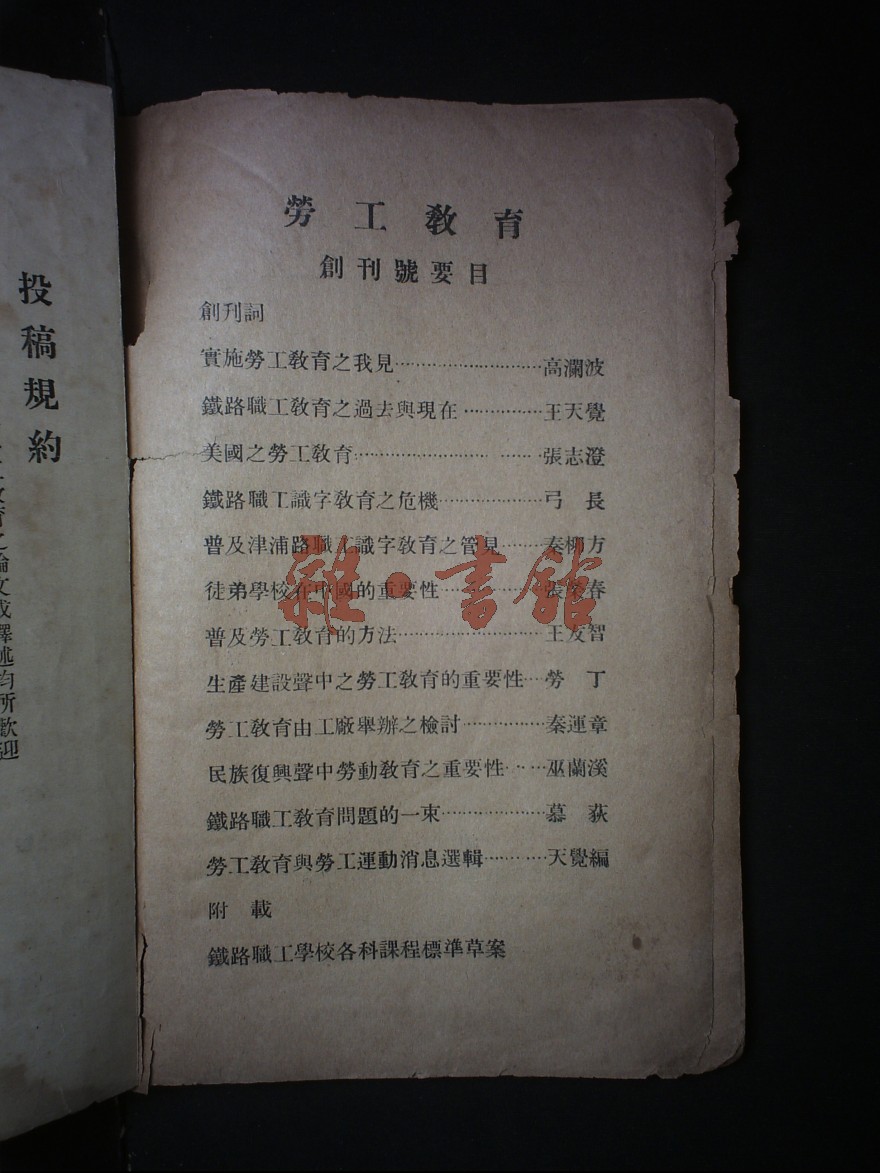 勞工教育
創刊號要目
創刊詞
實施勞工教育之我見……………………高瀾波
鐵路職工教育之過去與現在……………王天覺
美國之勞工教育……………………張志澄
鐵路職工識字教育之危機……………弓　長
普及津浦路職工識字教育之管見……秦柳方
徒弟學校在中國的重要性……………張　春
普及勞工教育的方法……………王友智
生產建設聲中之勞工教育的重要性…勞　丁
勞工教育由工廠舉辦之檢討……………秦運章
民族復興聲中勞動教育之重要性……巫蘭溪
鐵路職工教育問題的一束……………慕　荻
勞工教育與勞工運動消息選輯………天覺編
附　載
鐵路職工學校各科課程標準草案
投稿規約
教育之論文或譯述均所歡迎
雜·書館